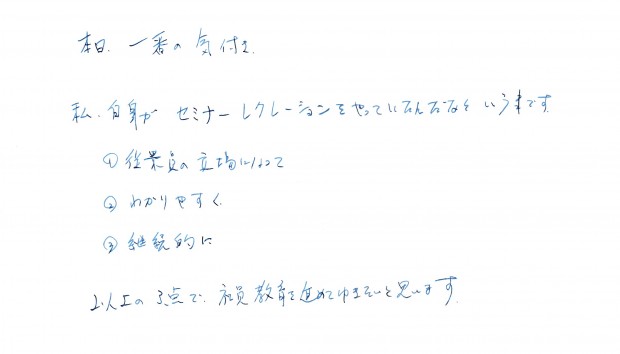 本日、一番の気付き
私、自身が セミナーレクレーションをやっていたんだなという事です
① 従業員の立場になって
② わかりやすく
③ 継続的に
以上の3点で、社員教育を進めてゆきたいと思います